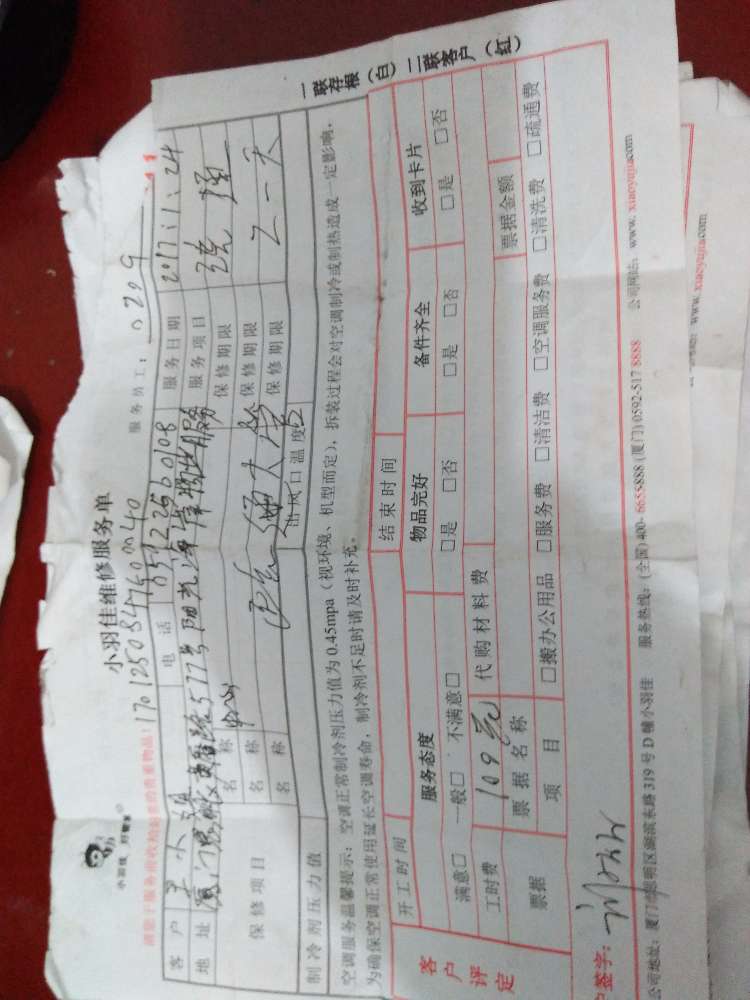 小羽佳维修服务单
小羽佳,好管家
请您于服务前收拾好您的贵重物品!
1701250847600040
服务员工: 0209
客户 电话 服务日期 2017:1:24
地址 服务项目
保修项目
名称 保修期限
名称 保修期限
名称 保修期限
制冷剂压力值 出风口温度
空调服务温馨提示:空调正常制冷剂压力值为0.45mpa(视环境、机型而定),拆装过程会对空调制冷或制热造成一定影响,
为确保空调正常使用延长空调寿命,制冷剂不足时请及时补充。
一联存根(白)二联客户(红)
客户评定
开工时间 结束时间
服务态度 物品完好 备件齐全 收到卡片
满意□ 一般□ 不满意□ □是 □否 □是 □否 □是 □否
工时费 109元 代购材料费
票据 票据名称 票据金额
项目 □搬办公用品 □服务费 □清洁费 □空调服务费 □清洗费 □疏通费
签字:
公司地址:厦门市思明区湖滨东路319号D幢小羽佳 服务热线:(全国)400-6655888 (厦门)0592-517 8888 公司网站:www.xiaoyujia.com
www.xiaoyujia.com